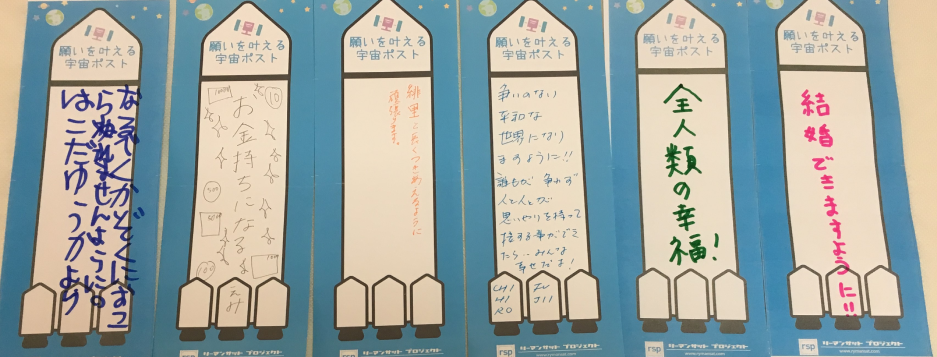 願いを叶える
宇宙ポスト
なるべくかぞくにおこ
られませんように。
はこだゆうかより
願いを叶える
宇宙ポスト
お金持ちになるよ
えみ
10
100
願いを叶える
宇宙ポスト
と長くつきあえるように
頑張ります。
願いを叶える
宇宙ポスト
争いのない
平和な
世界になり
ますように!!
誰もが 争わず
人と人とが
思いやりを持って
接する事ができ
たら…みんな
幸せだよ!
CHI
HI
RO
JII
願いを叶える
宇宙ポスト
全人類の幸福!
願いを叶える
宇宙ポスト
結婚できますように!!
リーマンサット プロジェクト
rsp リーマンサット プロジェクト
rsp リーマンサット プロジェクト
rsp リーマンサット プロジェクト